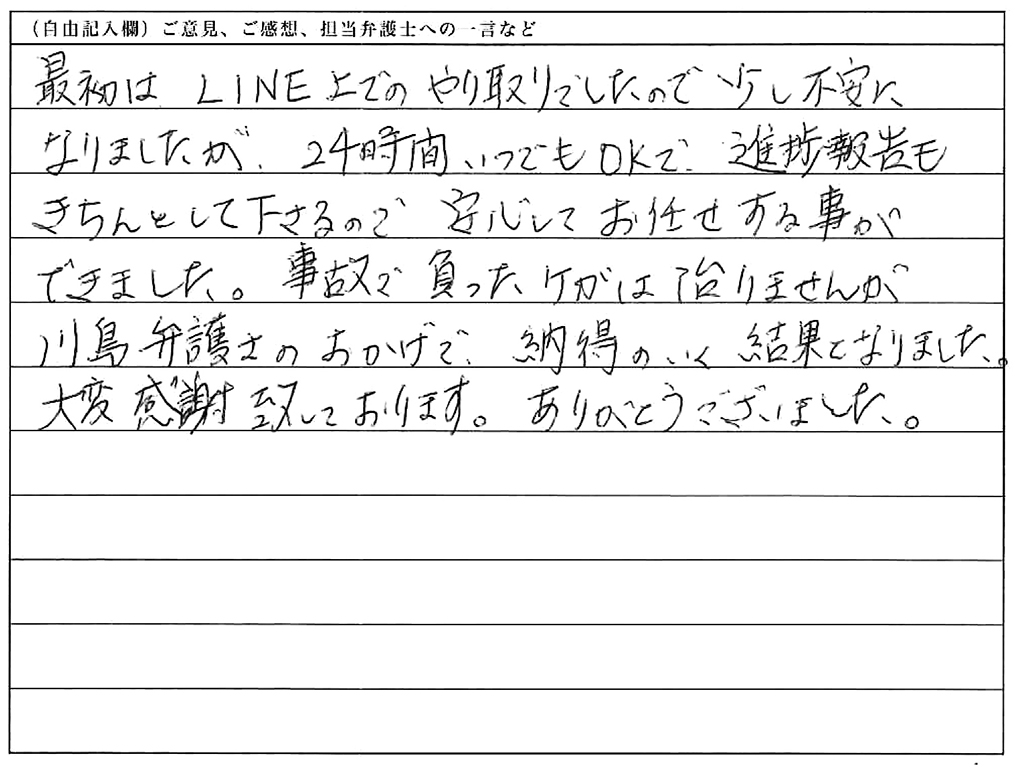 （自由記入欄）ご意見、ご感想、担当弁護士への一言など
最初は LINE上でのやり取りでしたので少し不安に
なりましたが、24時間いつでもOKで、進捗報告も
きちんとして下さるので 安心してお任せする事が
できました。事故で負ったケガは治りませんが
川島弁護士のおかげで、納得のいく結果となりました。
大変感謝致しております。ありがとうございました。